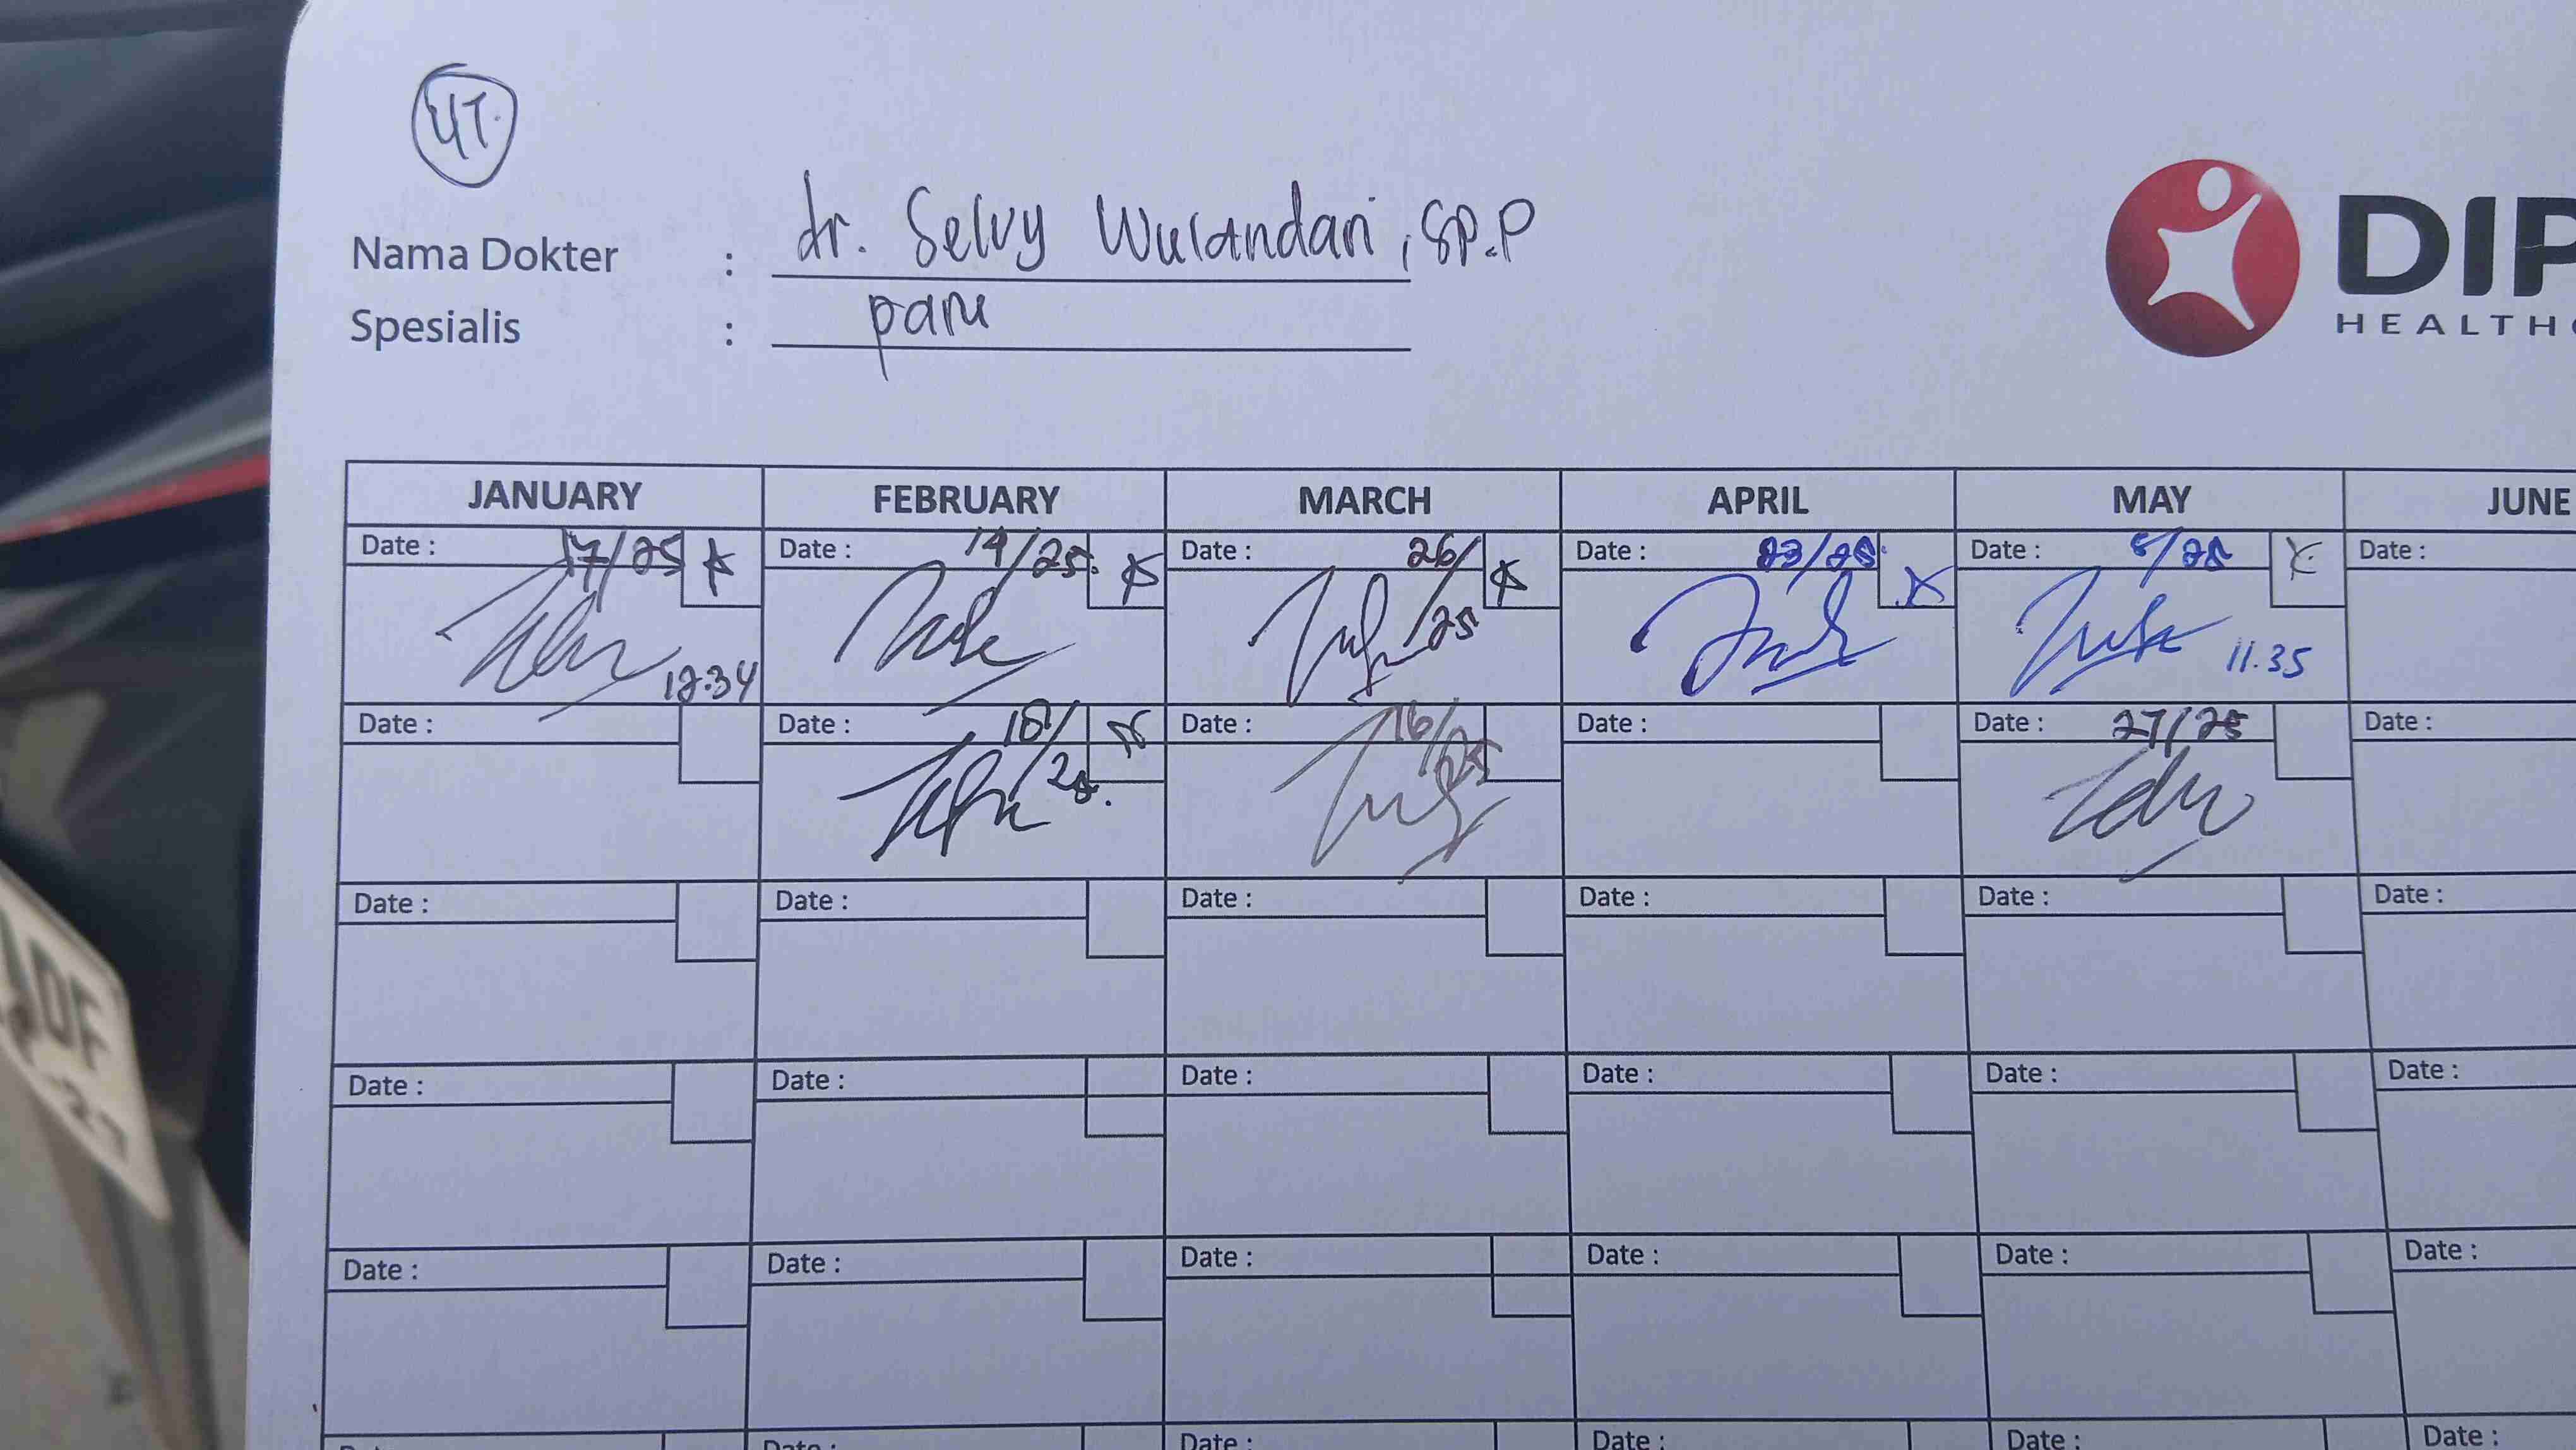 4T.
Nama Dokter : dr. Selvy Wulandari, Sp.P
Spesialis : paru
DIP
HEALTHC
JANUARY FEBRUARY MARCH APRIL MAY JUNE
Date : 17/25 Date : 14/25 Date : 26/25 Date : 23/25 Date : 8/25 Date :
12.34 11.35
Date : Date : 18/25 Date : Date : Date : 27/25 Date :
Date : Date : Date : Date : Date : Date :
Date : Date : Date : Date : Date : Date :
Date : Date : Date : Date : Date : Date :
Date : Date : Date : Date : Date :
DF
27